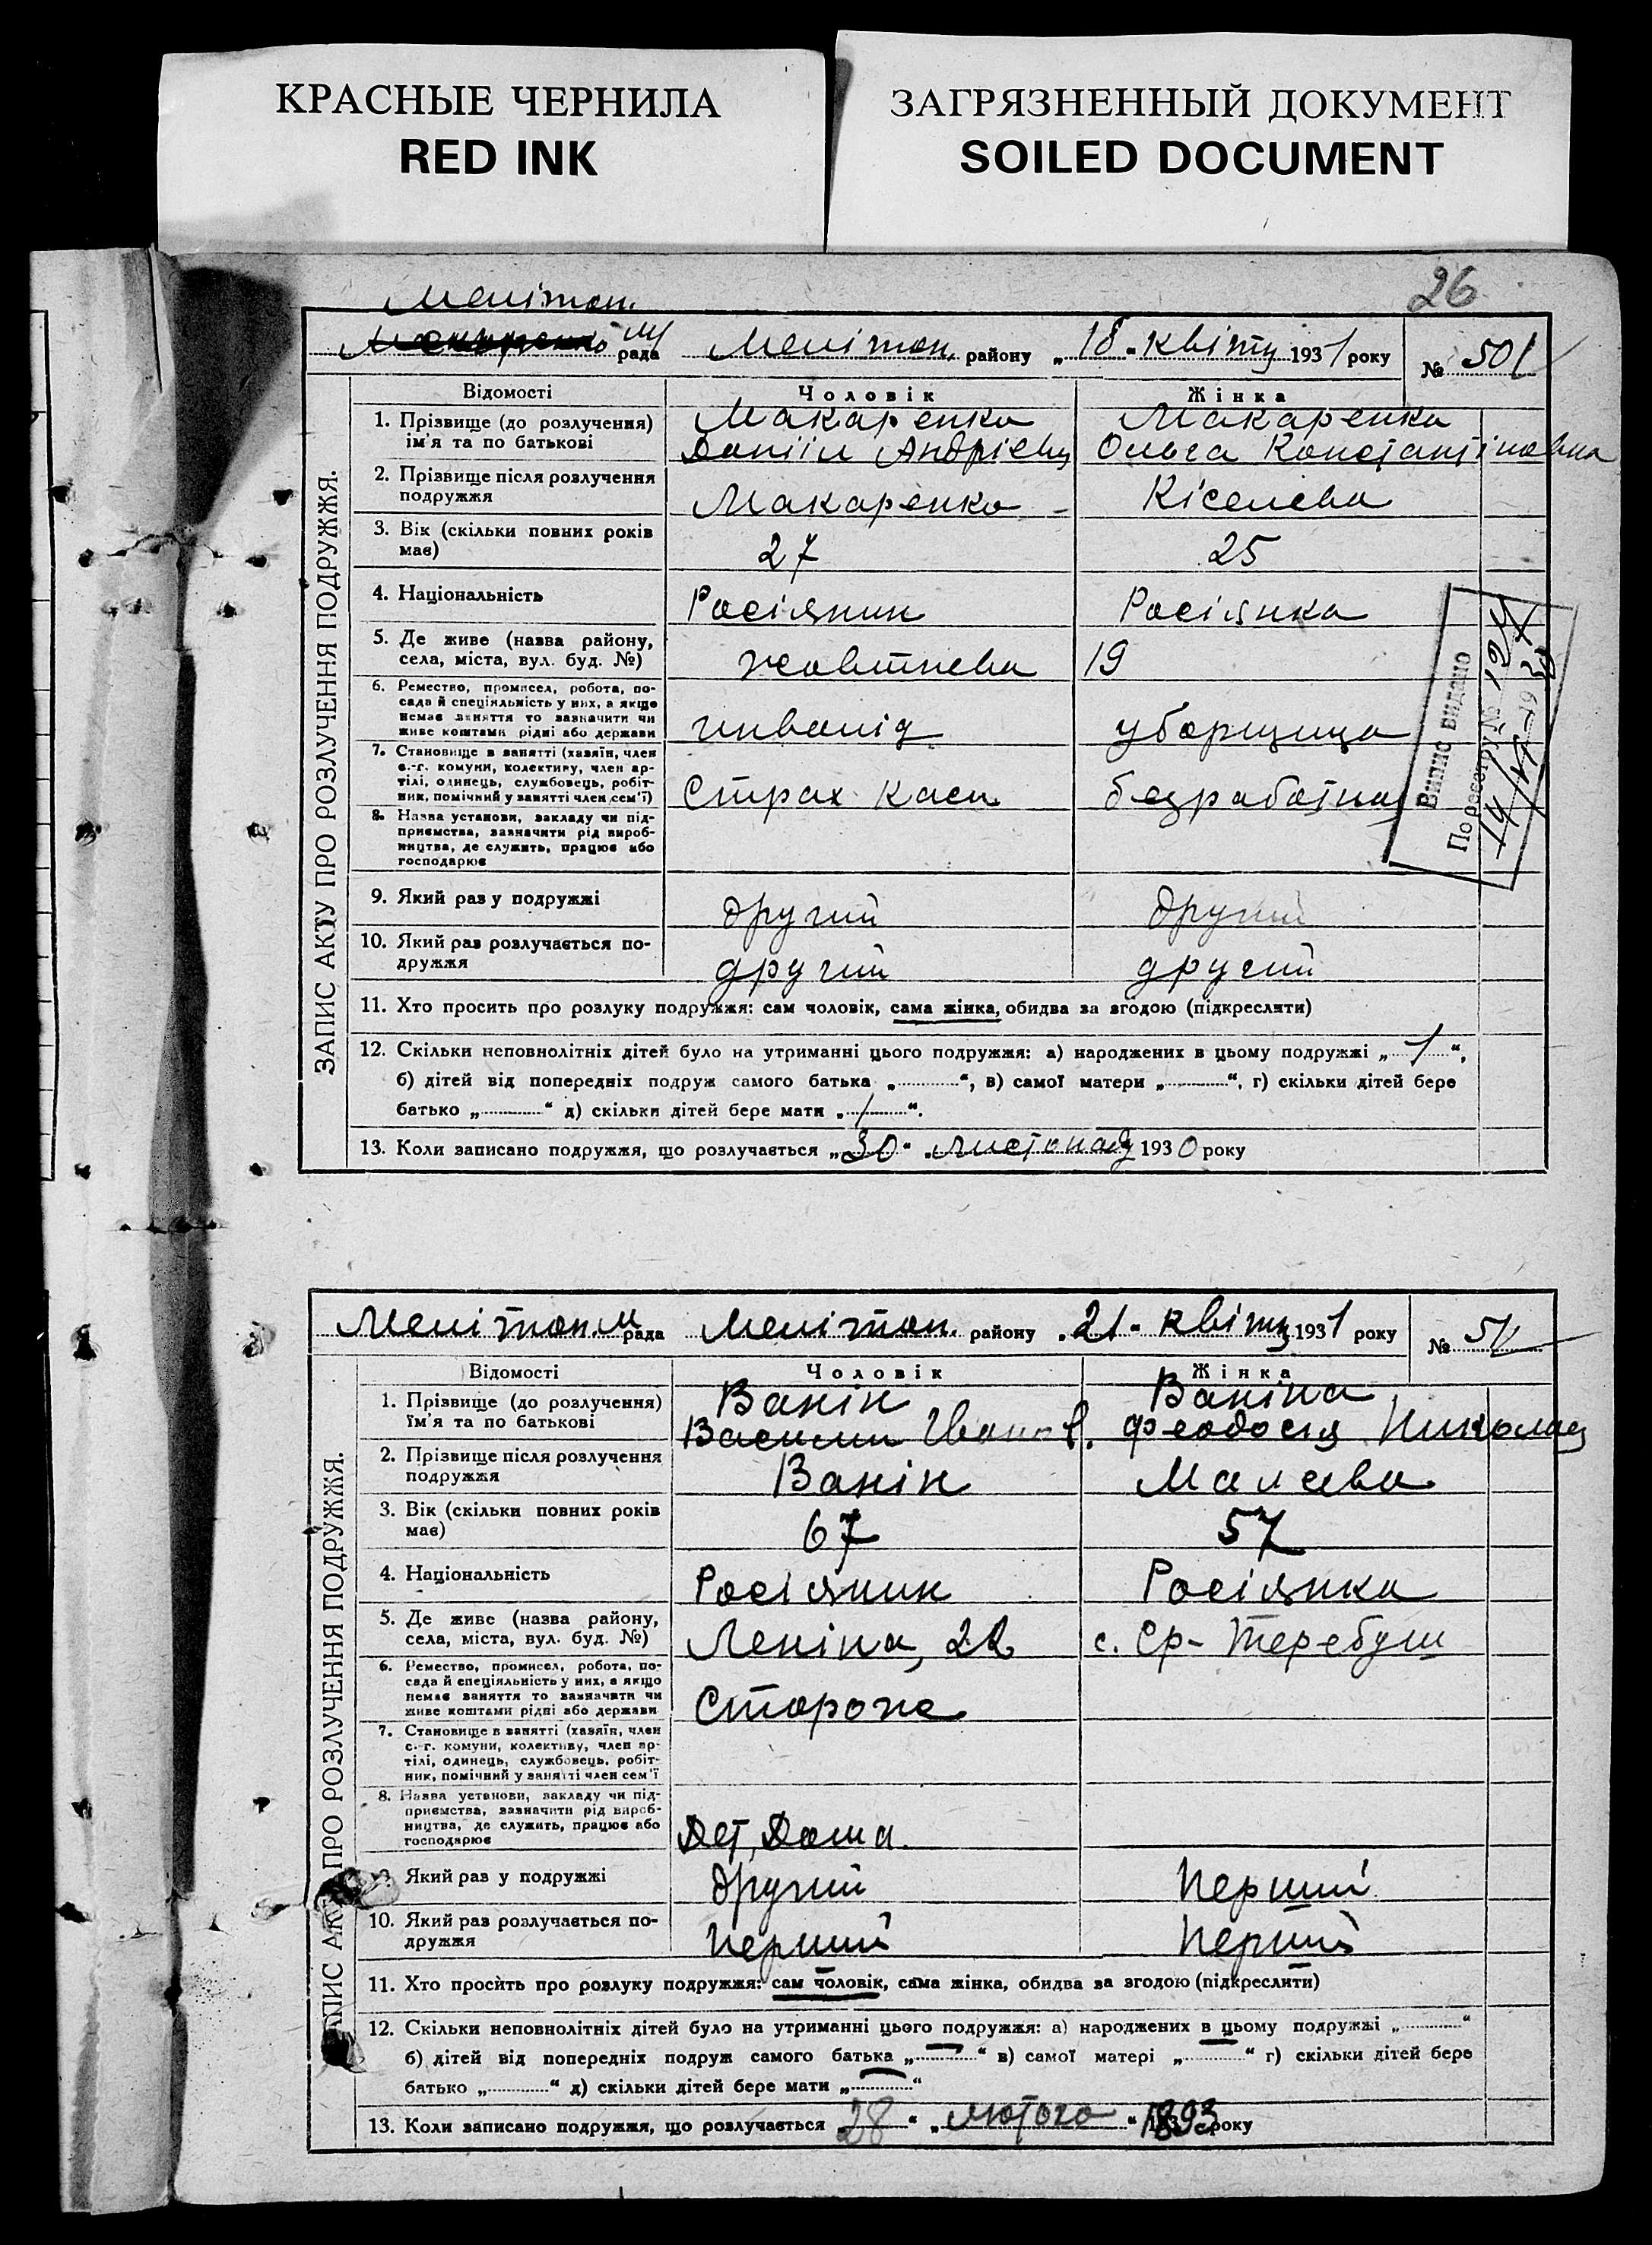 КРАСНЫЕ ЧЕРНИЛА
RED INK
ЗАГРЯЗНЕННЫЙ ДОКУМЕНТ
SOILED DOCUMENT
26
Меліт­оп.
рада Мелітоп. району „18“ квітн 1931 року № 50
ЗАПИС АКТУ ПРО РОЗЛУЧЕННЯ ПОДРУЖЖЯ.
Відомості Чоловік Жінка
1. Прізвище (до розлучення) ім'я та по батькові Макаренко Макаренко
Даніїл Андрієвц Ольга Константіновна
2. Прізвище після розлучення подружжя Макаренко Кіселева
3. Вік (скільки повних років має) 27 25
4. Національність Росіянин Росіянка
5. Де живе (назва району, села, міста, вул. буд. №) Жовтнева 19
6. Ремество, промисел, робота, посада й спеціяльність у них, а якщо немає заняття то зазначити чи живе коштами рідні або держави инвалід уборщица
7. Становище в занятті (хазяїн, член с.-г. комуни, колективу, член артілі, одинець, службовець, робітник, помічний у занятті член сем'ї) Страх каси безработна
8. Назва установи, закладу чи підприємства, зазначити рід виробництва, де служить, працює або господарює
Випис видано
По реєстру №
9. Який раз у подружжі другий другий
10. Який раз розлучається подружжя другий другий
11. Хто просить про розлуку подружжя: сам чоловік, сама жінка, обидва за згодою (підкреслити)
12. Скільки неповнолітніх дітей було на утриманні цього подружжя: а) народжених в цьому подружжі „1“,
б) дітей від попередніх подруж самого батька „ “, в) самої матери „ “, г) скільки дітей бере
батько „ “ д) скільки дітей бере мати „1“.
13. Коли записано подружжя, що розлучається „30“ листопад 1930 року
Мелітоп. м рада Мелітоп. району „21“ квітн 1931 року № 51
ЗАПИС АКТУ ПРО РОЗЛУЧЕННЯ ПОДРУЖЖЯ.
Відомості Чоловік Жінка
1. Прізвище (до розлучення) їм'я та по батькові Ванін Ваніна
Василий Іванов. Феодосія Николац
2. Прізвище після розлучення подружжя Ванін Малеева
3. Вік (скільки повних років має) 67 57
4. Національність Росіянин Росіянка
5. Де живе (назва району, села, міста, вул. буд. №) Леніна, 22 с. Ср- Теребуш
6. Ремество, промисел, робота, посада й спеціяльність у них, а якщо немає заняття то зазначити чи живе коштами рідні або держави Сторож
7. Становище в занятті (хазяїн, член с.-г. комуни, колективу, член артілі, одинець, службовець, робітник, помічний у занятті член сем'ї
8. Назва установи, закладу чи підприємства, зазначити рід виробництва, де служить, працює або господарює Дет, Дома.
9. Який раз у подружжі другий перший
10. Який раз розлучається подружжя перший перший
11. Хто просить про розлуку подружжя: сам чоловік, сама жінка, обидва за згодою (підкреслити)
12. Скільки неповнолітніх дітей було на утриманні цього подружжя: а) народжених в цьому подружжі „ “
б) дітей від попередніх подруж самого батька „ “ в) самої матері „ “ г) скільки дітей бере
батько „ “ д) скільки дітей бере мати „ “
13. Коли записано подружжя, що розлучається „28“ „лютого“ 1893 року